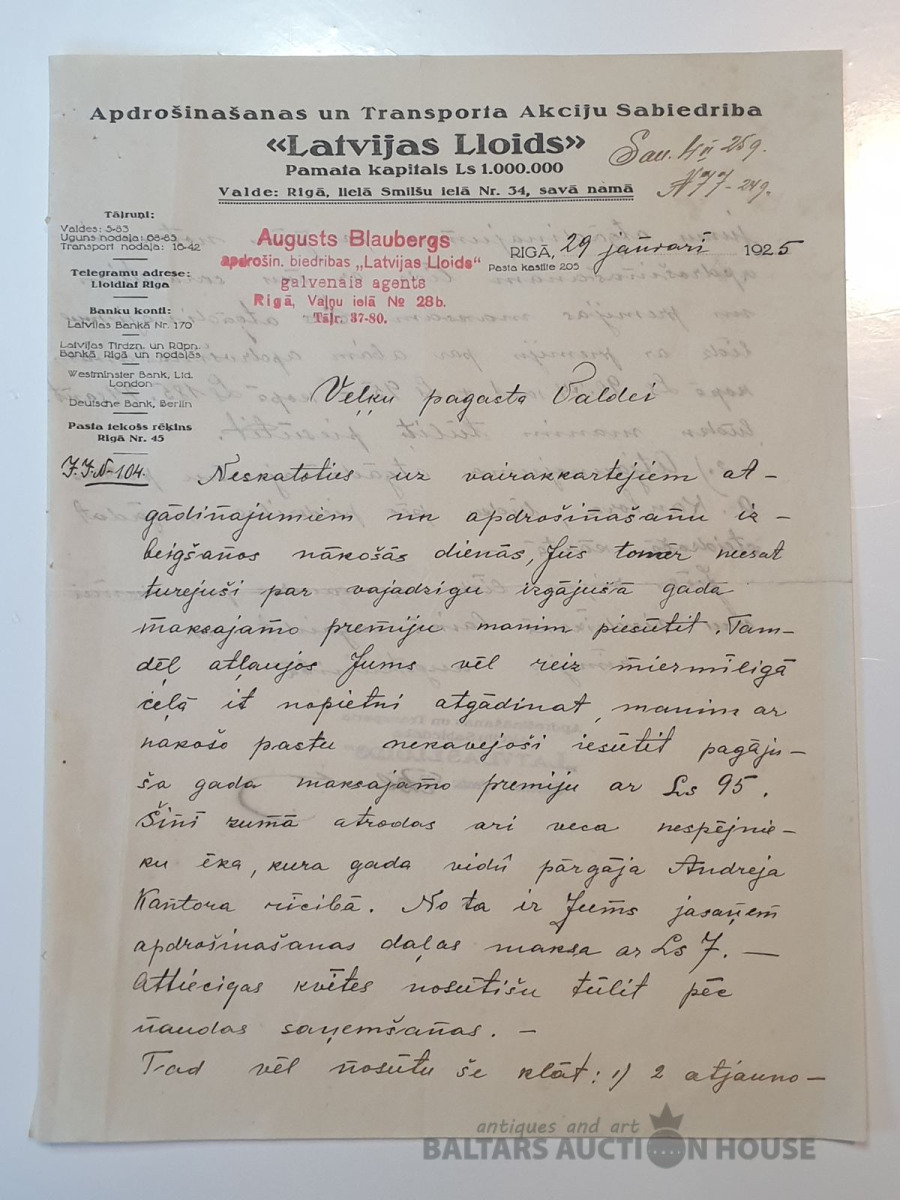 Apdrošināšanas un Transporta Akciju Sabiedrība
«Latvijas Lloids»
Pamata kapitals Ls 1.000.000
Valde: Rīgā, lielā Smilšu ielā Nr. 34, savā namā
Sau. 4/II 25g.
N 77-24g.
Tālruņi:
Valdes: 5-83
Uguns nodaļa: 68-83
Transport nodaļa: 16-42
Telegramu adrese:
Lloidlat Rīga
Banku konti:
Latvijas Bankā Nr. 170
Latvijas Tirdzn. un Rūpn.
Bankā Rīgā un nodaļās
Westminster Bank, Ltd.
London
Deutsche Bank, Berlin
Pasta tekošs rēķins
Rīgā Nr. 45
Augusts Blaubergs
apdrošin. biedribas „Latvijas Lloids"
galvenais agents
Rīgā, Vaļņu ielā № 28b.
Tālr. 37-80.
RĪGĀ, 29 janvarī 1925
Pasta kastīte 205
Veļķu pagasta Valdei
J.J.N-104.
Neskatoties uz vairakkartejiem at-
gādinajumiem un apdrošinašanu iz-
beigšanos nākošās dienās, Jūs tomēr neesat
turejuši par vajadzigu izgājušā gada
maksajamo premiju manim piesūtit. Tam-
dēļ atļaujos Jums vēl reiz miermīligā
ceļā it nopietni atgādinat, manim ar
nakošo pastu nekavejoši iesūtit pagāju-
ša gada maksajamo premiju ar Ls 95.
Šinī zumā atrodas ari veca nespējnie-
ku ēka, kura gada vidū pārgāja Andreja
Kantora rīcibā. No ta ir Jums jasaņem
apdrošinašanas daļas maksa ar Ls 7. —
Attiecigas kvītes nosūtišu tūlit pēc
naudas saņemšanas. —
Tad vēl nosūtu še klāt: 1) 2 atjauno-
antiques and art
BALTARS AUCTION HOUSE